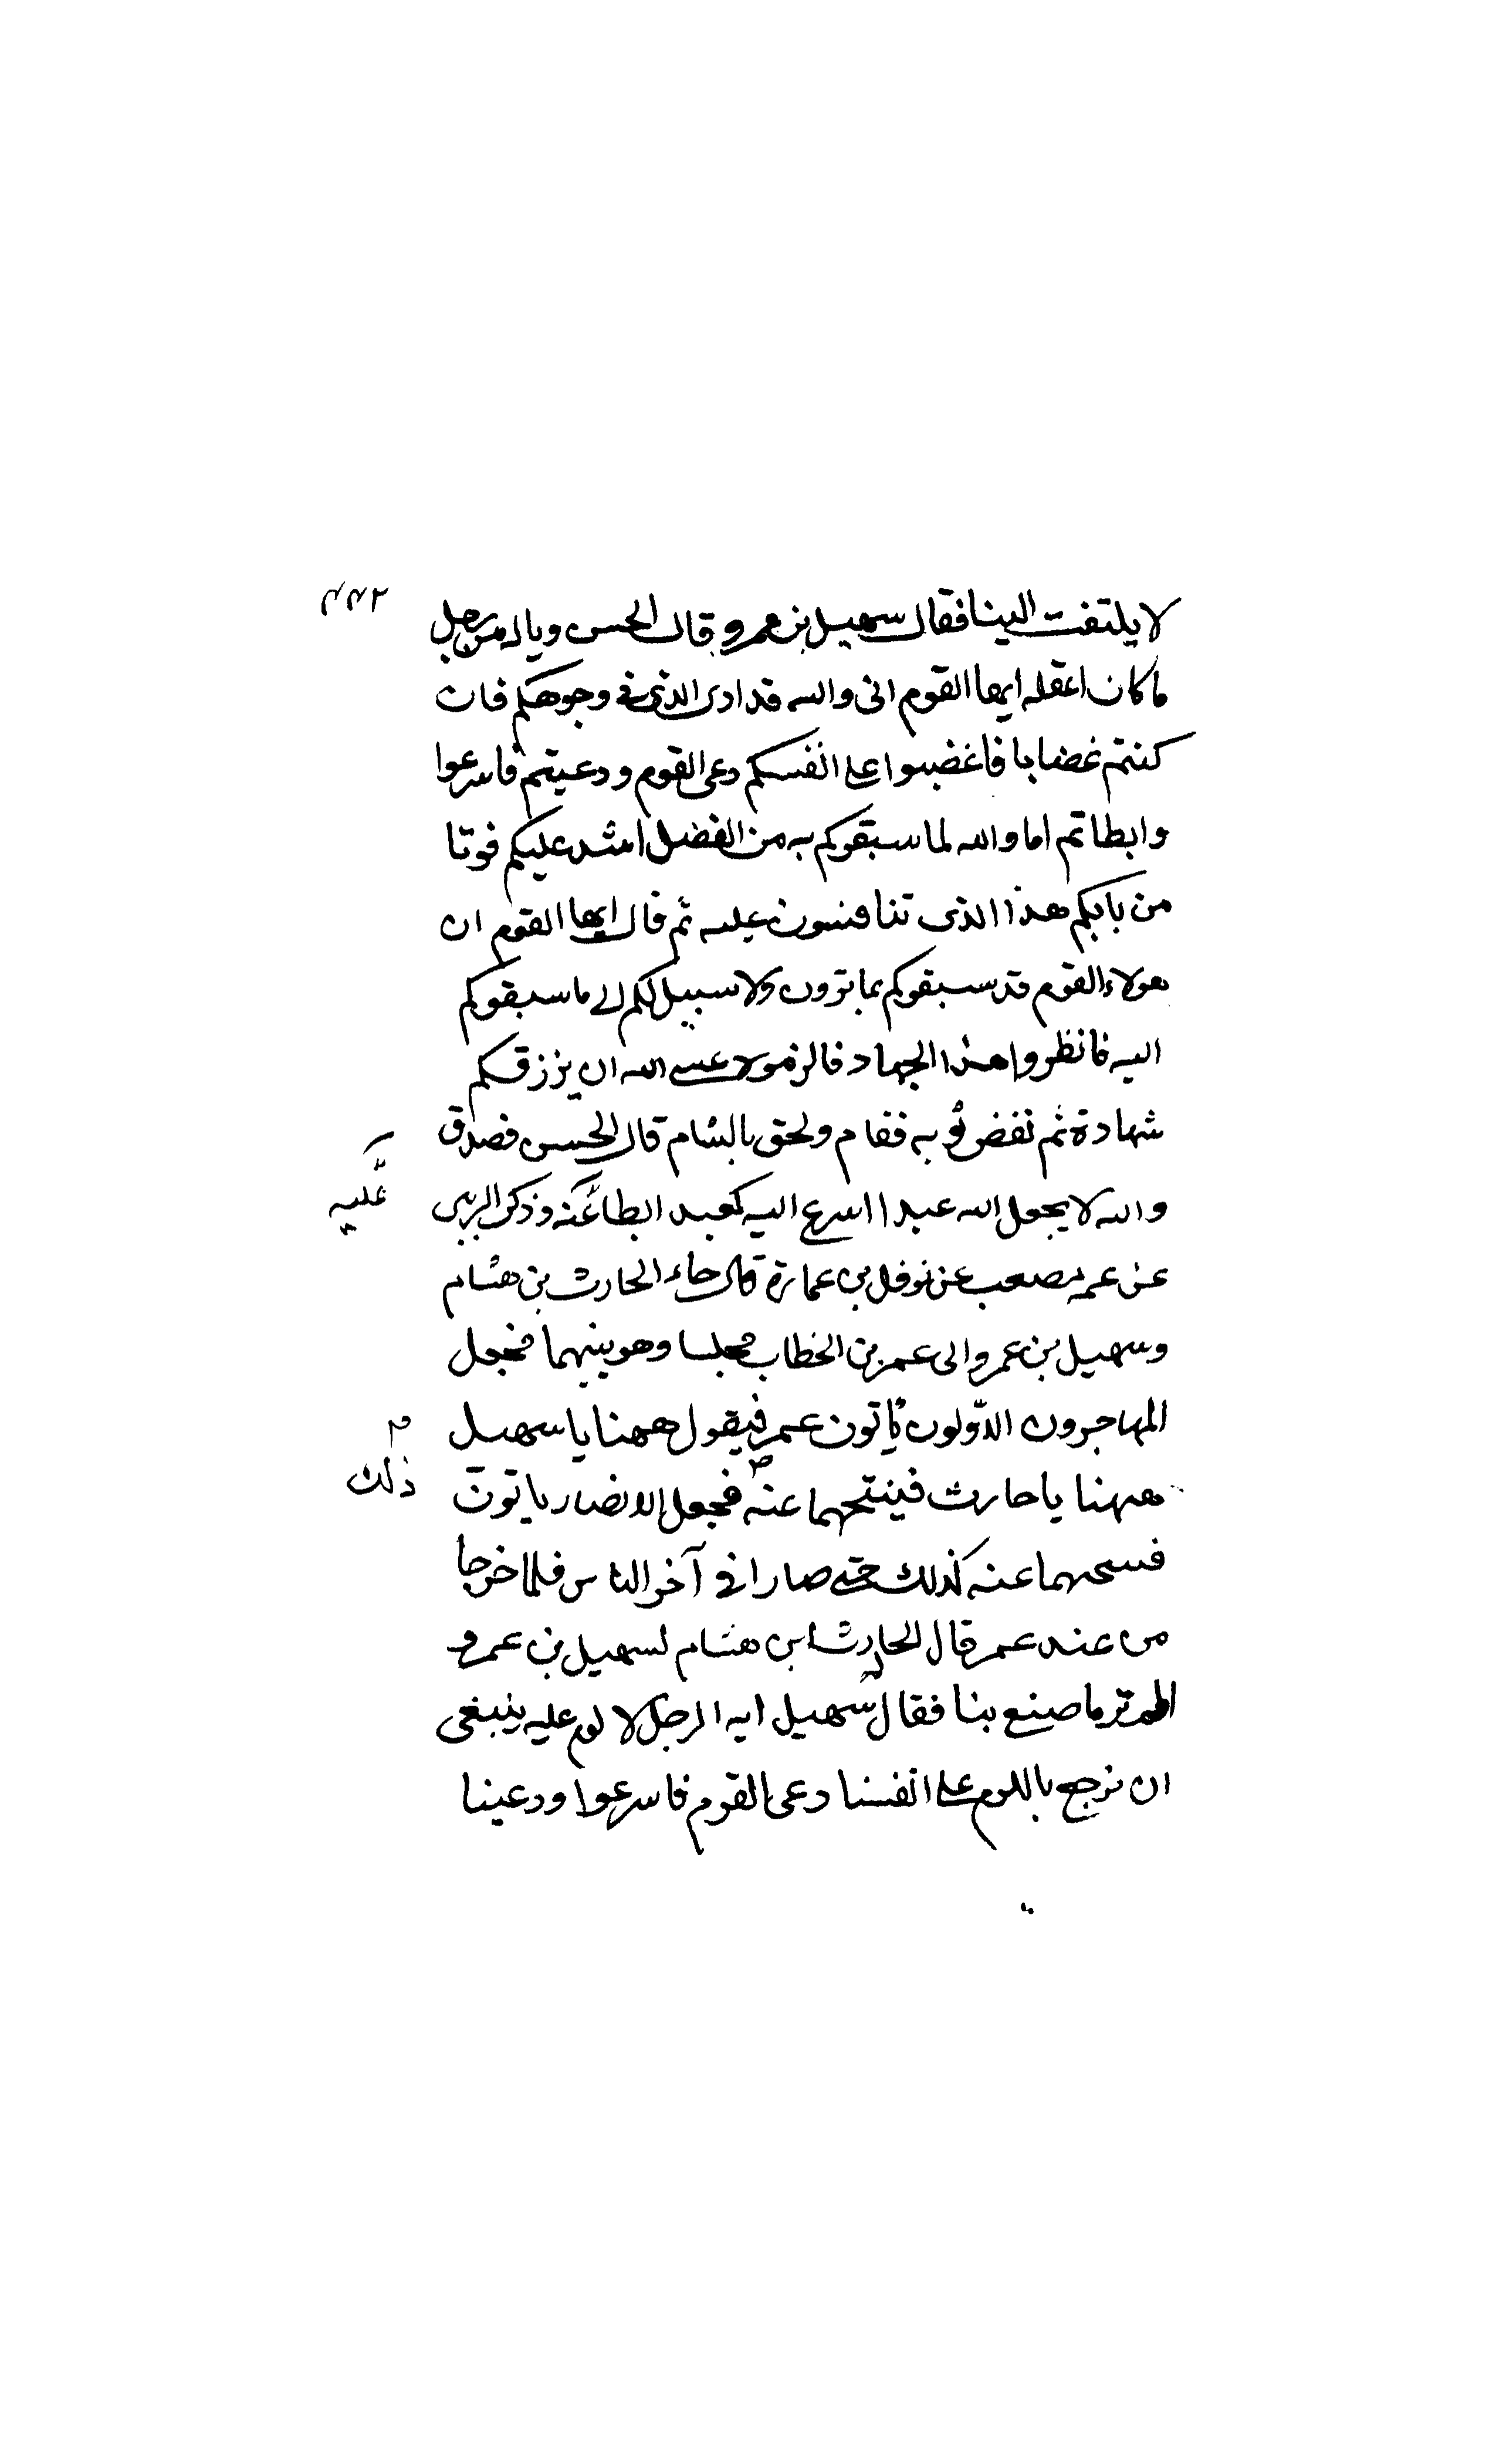 ٤٤٢
لا يلتفت الينا فقال سهيل بن عمرو قال الحسن وياله من رجل
ما كان اعقله ايها القوم انى والله قد ارى الذى فى وجوهكم فان
كنتم غضابا فاغضبوا على انفسكم دعى القوم ودعيتم فاسرعوا
وابطاتم اما والله لما سبقوكم به من الفضل اشد عليكم فوتا
من بابكم هذا الذى تنافسون عليه ثم قال ايها القوم ان
هولاء القوم قد سبقوكم بما ترون ولا سبيل لكم الى ما سبقوكم
اليه فانظروا هذا الجهاد فالزموه عسى الله ان يرزقكم
شهادة ثم نفض ثوبه فقام ولحق بالشام قال الحسن فصدق
والله لا يجعل الله عبدا اسرع اليه كعبد ابطا عنه وذكر الزبير
عليه
عن عمه مصعب عن نوفل بن عمارة قال جاء الحارث بن هشام
وسهيل بن عمرو الى عمر بن الخطاب فجلسا وهو بينهما فجعل
المهاجرون الاولون ياتون عمر فيقول ههنا يا سهيل
ههنا يا حارث فينحيهما عنه فجعل الانصار ياتون
ذلك
فينحيهما عنه كذلك حتى صارا فى آخر الناس فلما خرجا
من عند عمر قال الحارث ابن هشام لسهيل بن عمرو
الم تر ما صنع بنا فقال سهيل ايه الرجل لا لوم عليه ينبغى
ان نرجع باللوم على انفسنا دعى القوم فاسرعوا ودعينا